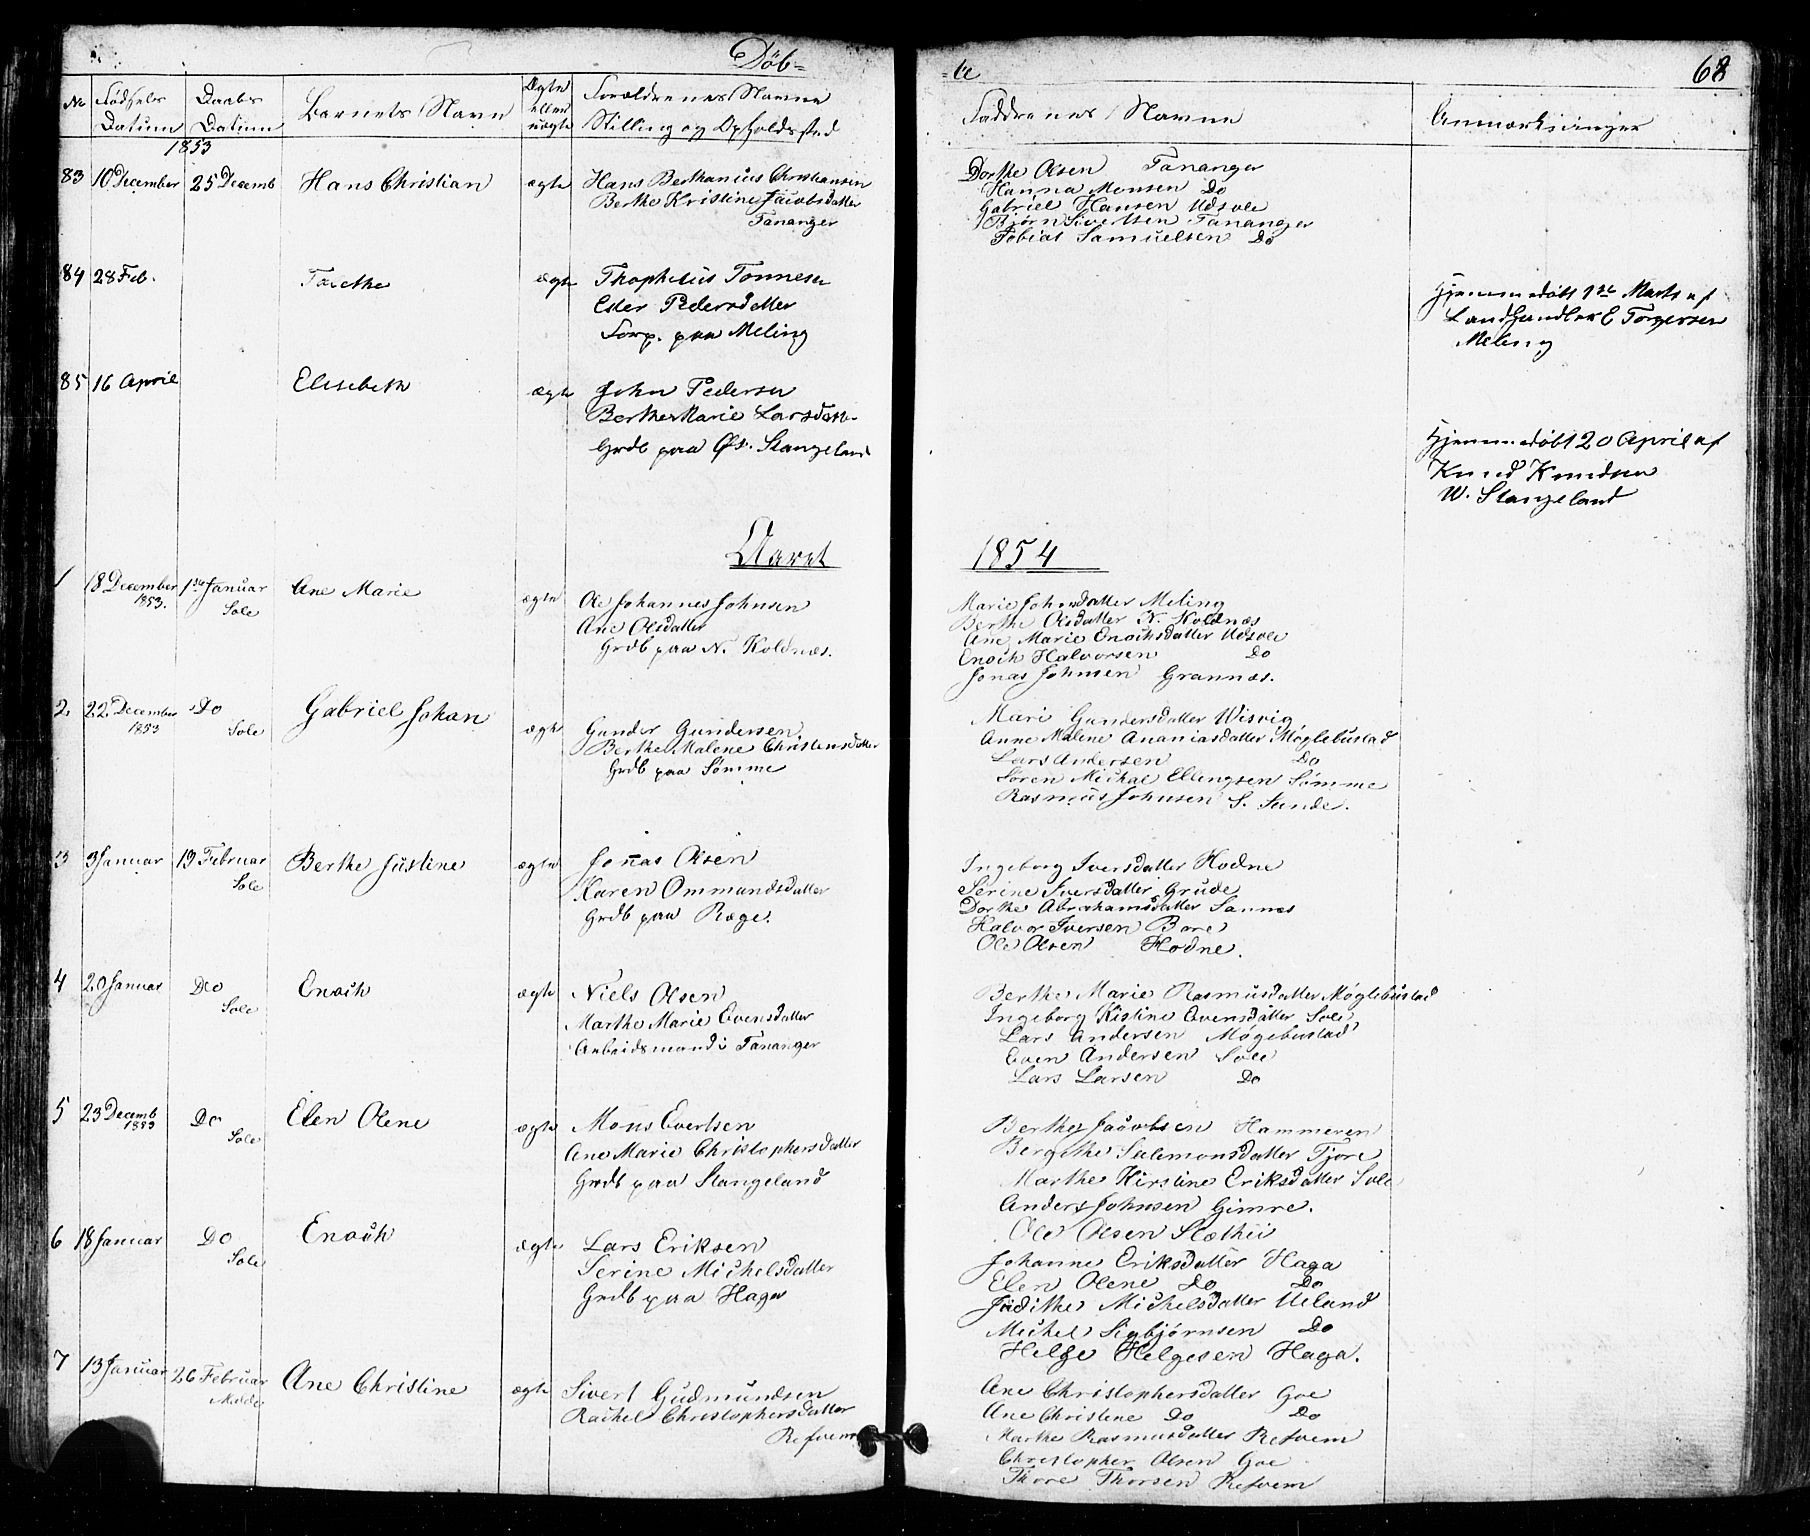 Døb-
-te
68
No
Fødsels
Datum
Daabs
Datum
Barnets Navn
Ægte
eller
uægte
Forældrenes Navne
Stilling og Opholdsted
Faddrenes Navne
Anmærkninger
1853
83 10 December 25 Decemb Hans Christian ægte Hans Berthanius Christiansen
Berthe Kristine Jacobsdatter
Tananger
Dorthe Olsen Tananger
Hanna Monsen Do
Gabriel Hansen Udsole
Bjørn Sivertsen Tananger
Tobias Samuelsen Do
84 28 Feb. ægte Thophelus Tønnesen
Ester Pedersdatter
Forp. paa Meling
Hjemmedøbt 1ste Marts af
Landhandler E Torgersen
Meling
85 16 April Elisebeth ægte John Pedersen
Berthe Marie Larsdatt.
Grdb paa Øs. Stangeland
Hjemmedøbt 20 April af
Knud Knudsen
W. Stangeland
Aaret 1854
1 18 December 1853. 1ste Januar Sole Ane Marie ægte Ole Johannes Johnsen
Ane Olsdatter
Grdb paa N. Koldnæs.
Marie Johnsdatter Meling
Berthe Olsdatter N. Koldnæs
Ane Marie Enochsdatter Udsole
Enoch Halvorsen Do
Jonas Johnsen Grannæs.
2. 22 December 1853 Do Sole Gabriel Johan ægte Gunder Gundersen
Berthe Malene Christensdatter
Grdb paa Sømme
Mari Gundersdatter Wisvig
Anne Malene Ananiasdatter Møglebustad
Lars Andersen Do
Søren Michal Ellingsen Sømme
Rasmus Johnsen S. Sunde.
3 3 Januar 19 Februar Sole Berthe Justine ægte Jonas Olsen
Karen Ommundsdatter
Grdb paa Ræge.
Ingeborg Iversdatter Hodne
Serine Iversdatter Grude
Dorthe Abrahamsdatter Sannes
Halvor Iversen Bore
Ole Olsen Hodne.
4 20 Januar Do Sole Enoch ægte Niels Olsen
Marthe Marie Evensdatter
Arbeidsmand i Tananger
Berthe Marie Rasmusdatter Møglebustad
Ingeborg Kistine Evensdatter Sole
Lars Andersen Møgebustad
Even Andersen Sole
Lars Larsen Do
5 23 Decemb 1853 Do Sole Elen Olene ægte Mons Evertsen
Ane Marie Christophersdatter
Grdb paa Stangeland
Berthe Jacobsen Hammeren
Bergethe Salemonsdatter Tjore
Marthe Kirstine Eriksdatter Sole
Anders Johnsen Gimre.
Ole Olsen Slethei
6 18 Januar Do Sole Enoch ægte Lars Eriksen
Serine Michelsdatter
Grdb paa Haga
Johanne Eriksdatter Haga
Elen Olene Do Do
Judithe Michelsdatter Ueland
Michel Sigbjørnsen Do
Helge Helgesen Haga.
7 13 Januar 26 Februar Ane Christine ægte Sivert Gudmundsen
Rachel Christophersdatter
Refvem
Ane Christophersdatter Goe
Ane Christene Do Do
Marthe Rasmusdatter Refvem
Christopher Olsen Goe
Thore Thorsen Refvem